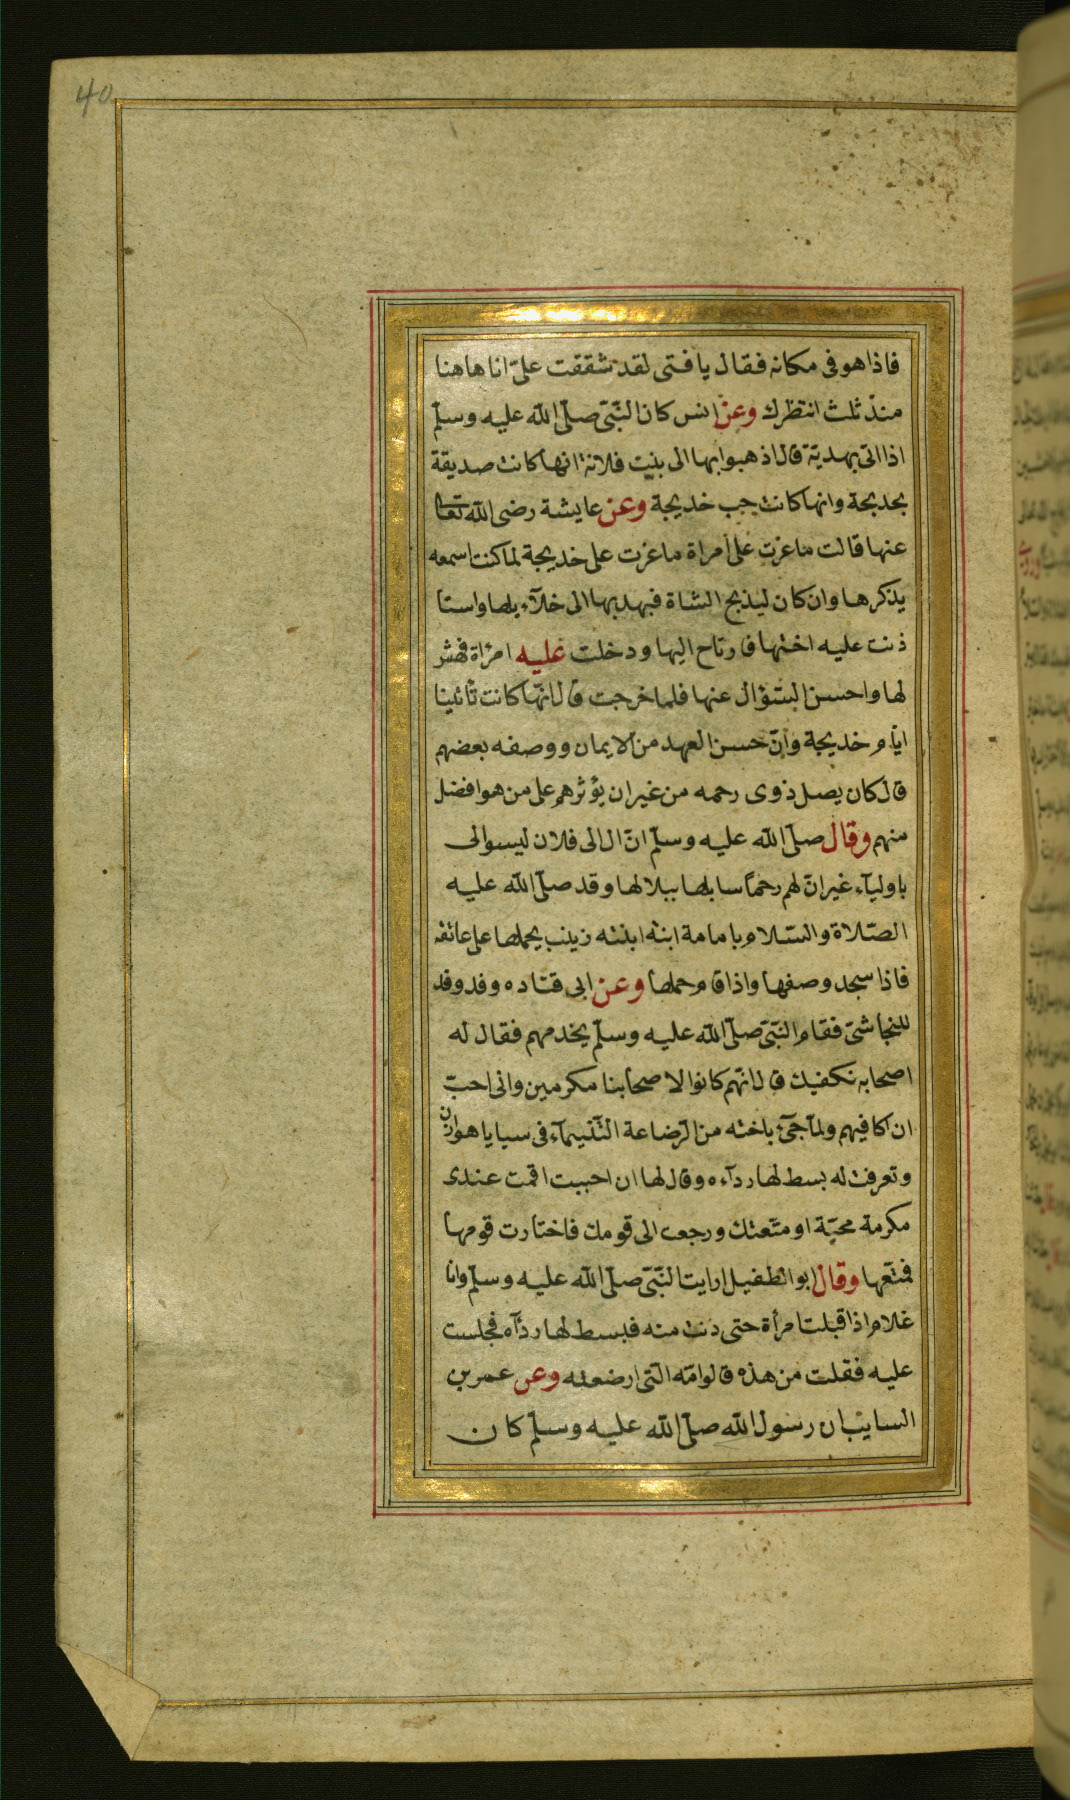 40
فاذا هو فى مكانه فقال يا فتى لقد شققت علىّ انا هاهنا
منذ ثلث انتظرك وعن انس كان النّبىّ صلّى الله عليه وسلّم
اذا اتى بهديّة قال اذهبوا بها الى بيت فلانة انها كانت صديقة
بخديجة وانها كانت تحب خديجة وعن عايشة رضى الله تعا
عنها قالت ما غرت على امراة ما غرت على خديجة لما كنت اسمعه
يذكرها وان كان ليذبح الشاة فيهديها الى خلآء يلها واستا
ذنت عليه اختها فارتاح اليها ودخلت عليه امرٔاة فهش
لها واحسن السّؤال عنها فلما خرجت قال انّها كانت تأتينا
ايّام خديجة وانّ حسن العهد من الايمان ووصفه بعضهم
قال كان يصل ذوى رحمه من غير ان يؤثرهم على من هو افضل
منهم وقال صلّى الله عليه وسلّم انّ ال ابى فلان ليسوا لى
باوليآء غير انّ لهم رحمًا سابلها ببلالها وقد صلّى الله عليه
الصّلاة والسّلام بامامة ابنه ابنته زينب يحملها على عاتقه
فاذا سجد وضعها واذا قام حملها وعن ابى قتاده وفد وفد
للنجاشىّ فقام النّبىّ صلّى الله عليه وسلّم يخدمهم فقال له
اصحابه نكفيك قال انّهم كانوا لاصحابنا مكرمين وانى احبّ
ان اكافيهم ولمآ جىٔ باخته من الرّضاعة الشّيمآء فى سبايا هوازن
وتعرفت له بسط لها ردآءه وقال لها ان احببت اقمت عندى
مكرمة محبّة او متّعتك ورجعت الى قومك فاختارت قومها
فمتّعها وقال ابو الطفيل رايت النّبىّ صلّى الله عليه وسلّم وانا
غلام اذا قبلت امرأة حتى دنت منه فبسط لها ردآه فجلست
عليه فقلت من هذه قالوا امّه الّتى ارضعته وعن عمر بن
السايب ان رسول الله صلّى الله عليه وسلّم كان